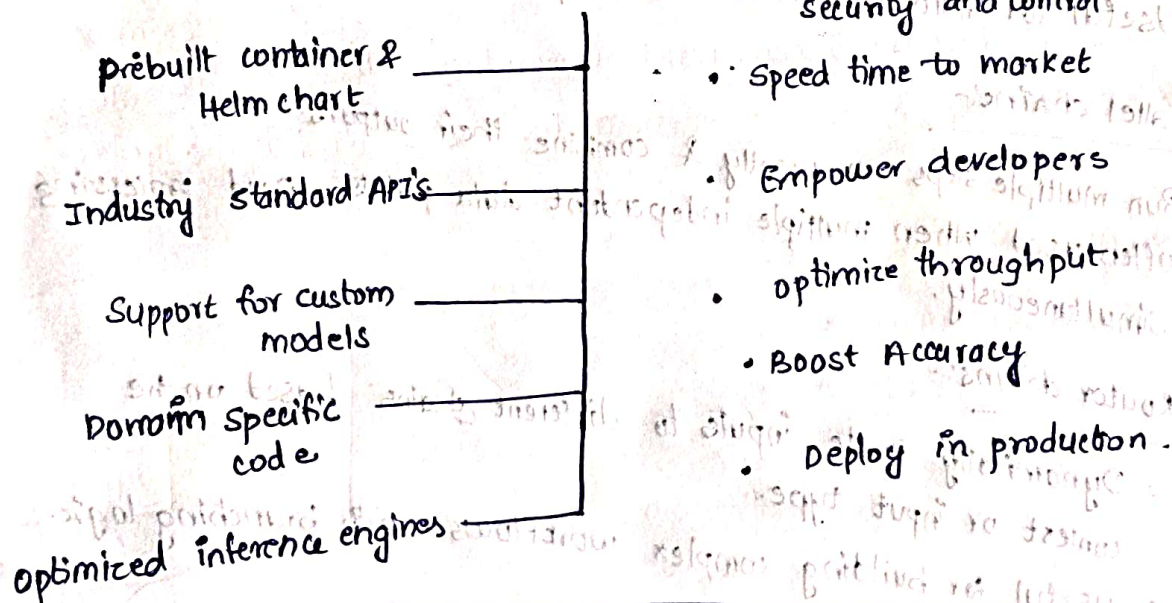 prebuilt container &
Helm chart
Industry standard API's
Support for custom
models
Domain specific
code
optimized inference engines
security and control
• Speed time to market
• Empower developers
• optimize throughput
• Boost Accuracy
• Deploy in production.